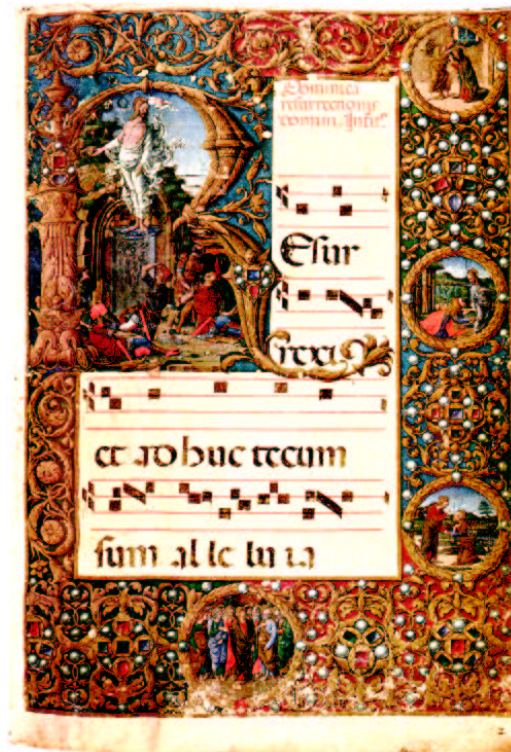 Dominica
resurrectionis
domini. Intro.
Esur
rexi
et adhuc tecum
sum al le lu ia